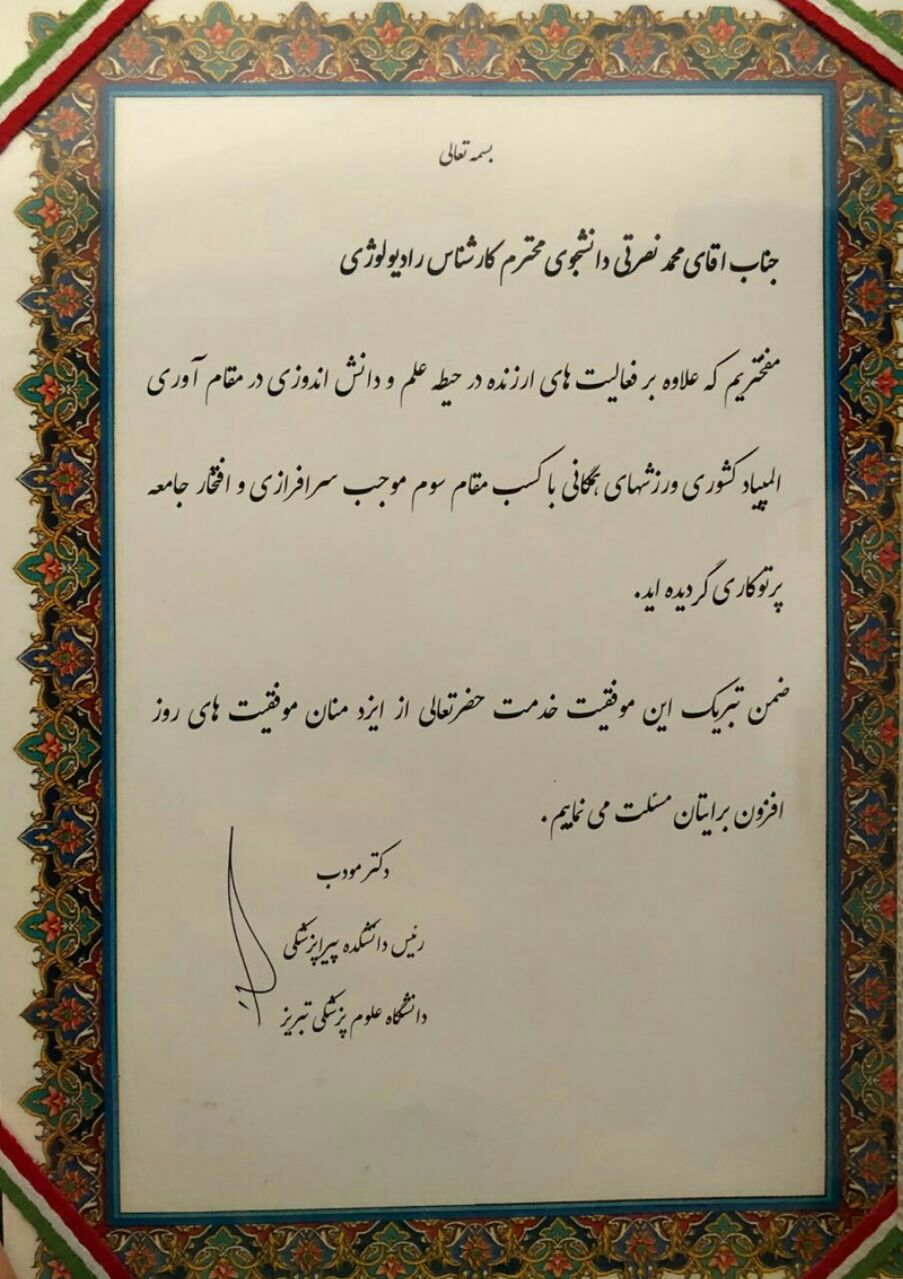 بسمه تعالی
جناب اقای محمد نصرتی دانشجوی محترم کارشناس رادیولوژی
مفتخریم که علاوه بر فعالیت های ارزنده در حیطه علم و دانش اندوزی در مقام آوری
المپیاد کشوری ورزشهای همگانی با کسب مقام سوم موجب سرافرازی و افتخار جامعه
پرتوکاری گردیده اید.
ضمن تبریک این موفقیت خدمت حضرتعالی از ایزد منان موفقیت های روز
افزون برایتان مسئلت می نماییم.
دکتر مودب
رئیس دانشکده پیراپزشکی
دانشگاه علوم پزشکی تبریز